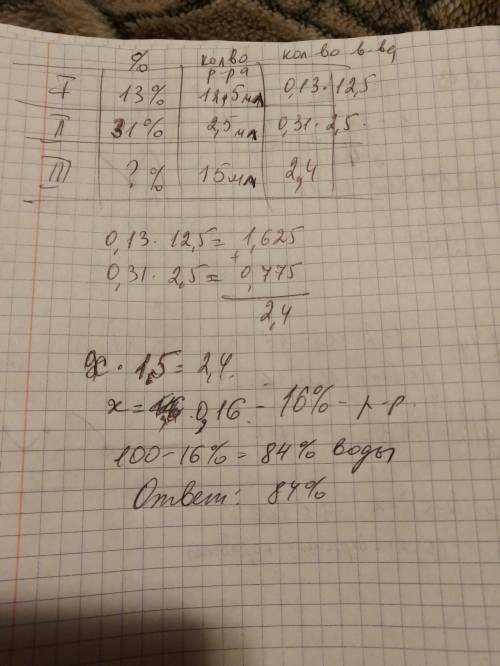 % кол во р-ра кол во в-ва
I 13% 12,5 мл 0,13 · 12,5
II 31% 2,5 мл 0,31 · 2,5.
III ? % 15 мл 2,4
0,13 · 12,5 = 1,625
+
0,31 · 2,5 = 0,775
2,4
x · 1,5 = 2,4.
x = 0,16 - 16% - р-р.
100 - 16% = 84% воды
Ответ: 84%